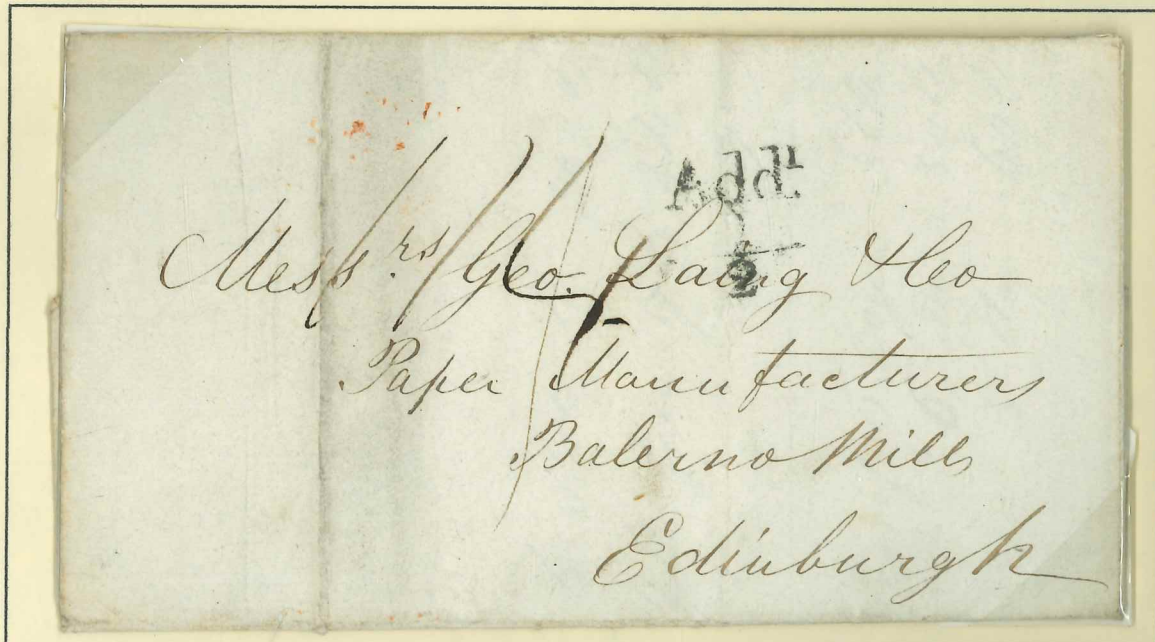 Addl
½
Messrs Geo. Laing & Co
Paper Manufacturers
Balerno Mills
Edinburgh